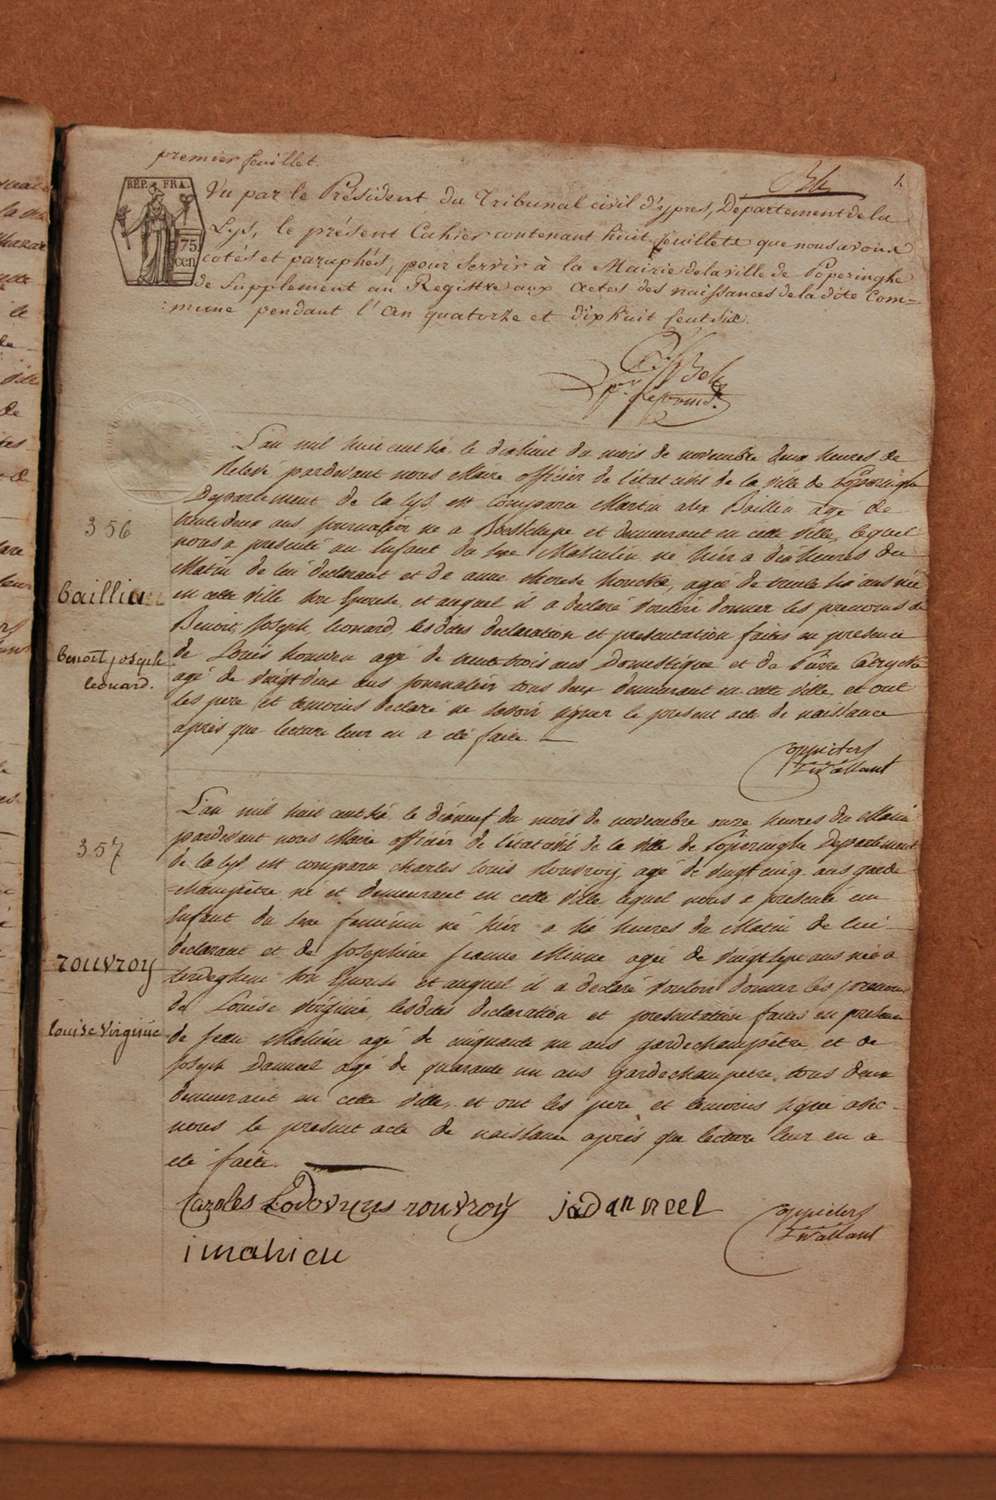 premier feuillet.
1.
REP. FRA.
75
cen
Vu par le Président du Tribunal civil d'ypres, Département de la
Lys, le présent Cahier contenant huit feuillets que nous avons
cotés et paraphés, pour servir à la Mairie de la ville de Poperinghe
de Supplement au Registre aux actes des naissances de la dite Com-
mune pendant l'an quatorze et dix huit cent six.
L'an mil huit cent six le dixhuit du mois de novembre deux heures de
relevé pardevant nous Maire officier de l'état civil de la ville de Poperinghe
Departement de la Lys est comparu Martin alex Baillieu agé de
trente deux ans journalier né a et demeurant en cette ville, lequel
356
nous a presenté un Enfant du sexe Masculin né hier a dix heures du
Matin de lui declarant et de anne therese houcke, agée de trente six ans née
baillieu
en cette ville son Epouse, et auquel il a declaré vouloir donner les prenoms de
Benoit, Joseph, leonard, les dites declaration et presentation faites en presence
benoit joseph
leonard.
de Louis agé de trente trois ans Domestique et de Pierre
agé de vingt deux ans journalier tous deux demeurant en cette ville, et ont
les pere et temoins declaré ne savoir signer le present acte de naissance
après que lecture leur en a été faite.
L'an mil huit cent six le dixneuf du mois de novembre onze heures du Matin
pardevant nous Maire officier de l'état civil de la ville de Poperinghe Departement
357
de la Lys est comparu charles louis rouvroy agé de vingt cinq ans garde
champêtre né et demeurant en cette ville lequel nous a presenté un
Enfant du sexe feminin né hier a six heures du Matin de lui
rouvroy
declarant et de Josephine Jeanne Minne agée de vingt sept ans née a
terdeghem son Epouse et auquel il a declaré vouloir donner les prenoms
louise virginie
de Louise virginie, les dites declaration et presentation faites en presence
de Jean Mahieu agé de cinquante un ans gardechampêtre et de
Joseph Danneel agé de quarante un ans gardechampetre, tous deux
demeurant en cette ville, et ont les pere et temoins signé avec
nous le present acte de naissance après que lecture leur en a
été faite.
Caroles Lodovicus rouvroy
j a Danneel
i mahieu